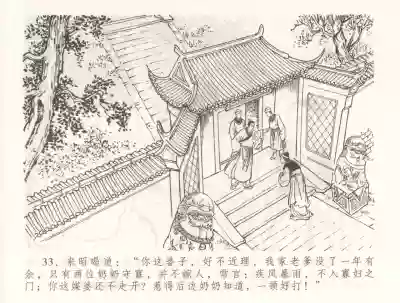 33．来昭喝道：“你这婆子，好不近理，我家老爹没了一年有
余，只有两位奶奶守寡，并不嫁人，常言：疾风暴雨，不入寡妇之
门；你这媒婆还不走开？惹得后边奶奶知道，一顿好打！”